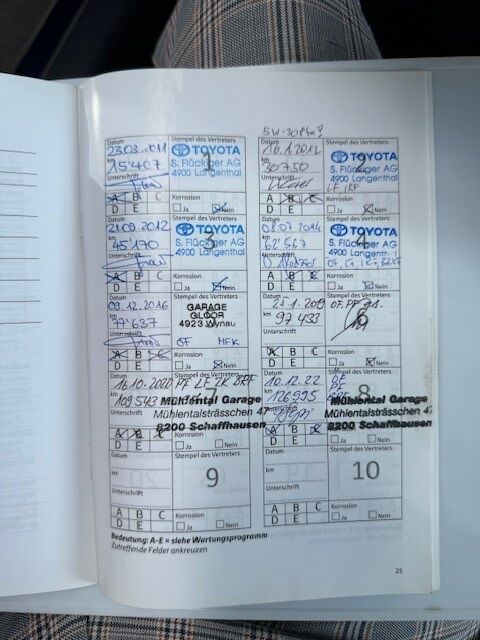 Datum
23.03.2011
Stempel des Vertreters
km
15'407
TOYOTA
S. Flückiger AG
4900 Langenthal
Unterschrift
A B C
D E
Korrosion
Ja Nein
Datum
16.1.2012
Stempel des Vertreters
km
30750
2
TOYOTA
S. Flückiger AG
4900 Langenthal
Unterschrift
A B C
D E
Korrosion
Ja Nein
21.09.2012
Stempel des Vertreters
km
45'170
TOYOTA
S. Flückiger AG
4900 Langenthal
A B C
D E
Korrosion
Ja Nein
08.07.2014
Stempel des Vertreters
km
62'567
TOYOTA
S. Flückiger AG
4900 Langenthal
A B C
D E
Korrosion
Ja Nein
Datum
09.12.2016
Stempel des Vertreters
km
77'637
GARAGE
GLOOR
4923 Wynau
Unterschrift
OF MFK
A B C
D E
Korrosion
Ja Nein
Datum
Stempel des Vertreters
km
97433
6
Unterschrift
A B C
D E
Korrosion
Ja Nein
Datum
Stempel des Vertreters
16.10.2020 PF LF ZK BRF
km
109543
Mühlental Garage
Mühlentalsträsschen 47
8200 Schaffhausen
Unterschrift
A B C
D E
Korrosion
Ja Nein
Datum
10.12.22
Stempel des Vertreters
km
126995
8
Mühlental Garage
Mühlentalsträsschen 47
8200 Schaffhausen
A B C
D E
Korrosion
Ja Nein
Datum
Stempel des Vertreters
km
9
Unterschrift
A B C
D E
Korrosion
Ja Nein
Datum
Stempel des Vertreters
km
10
Unterschrift
A B C
D E
Korrosion
Ja Nein
Bedeutung: A-E = siehe Wartungsprogramm
Zutreffende Felder ankreuzen
25